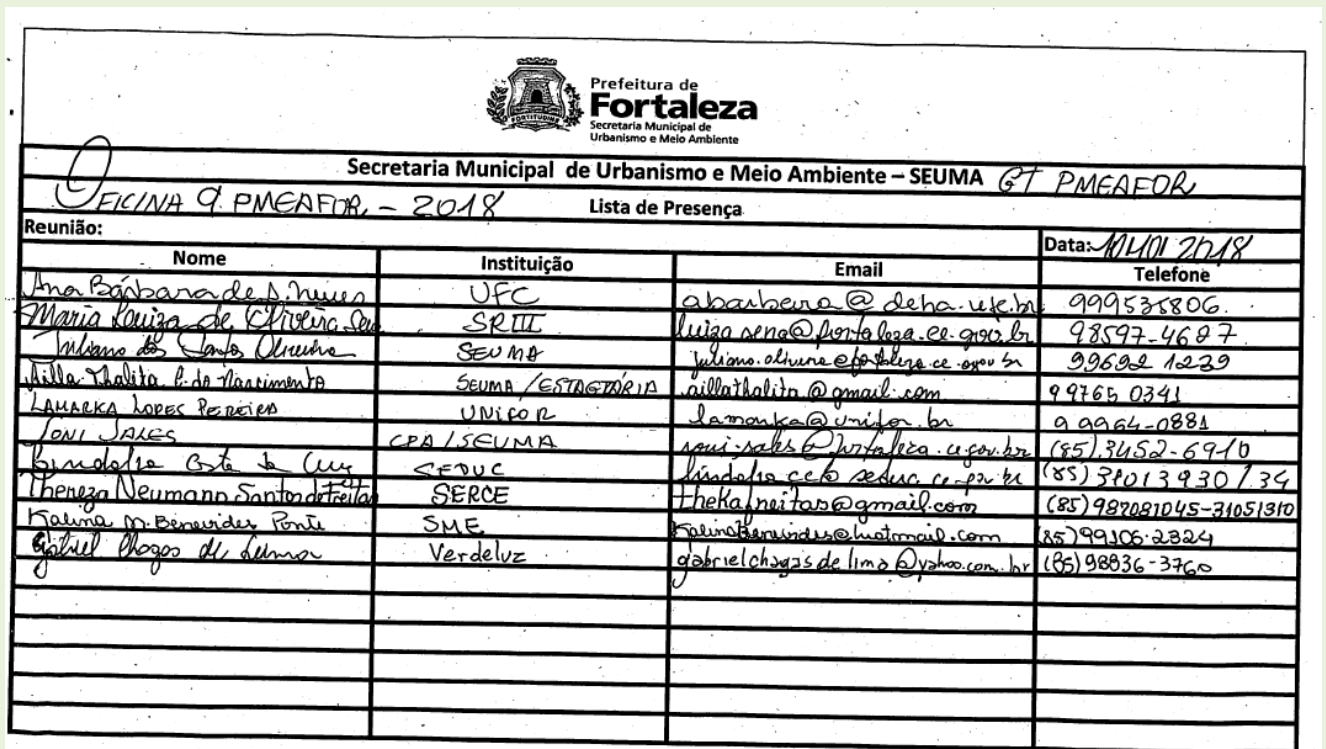 Prefeitura de
Fortaleza
Secretaria Municipal de
Urbanismo e Meio Ambiente
FORTITUDINE
Secretaria Municipal de Urbanismo e Meio Ambiente – SEUMA GT PMEAFOR
OFICINA 9 PMEAFOR – 2018 Lista de Presença
Reunião: Data: 2018
Nome Instituição Email Telefone
Ana Bárbara de UFC 999535806
Maria Luiza de Oliveira SRIII luiza.sena@fortaleza.ce.gov.br 98597-4687
Juliano dos Santos Oliveira SEUMA 99692 1239
Ailla Thalita do Nascimento SEUMA /ESTAGIÁRIA aillathalita@gmail.com 99765 0341
LAMARKA LOPES PEREIRA UNIFOR lamarka@unifor.br 9 9964-0881
SALES CPA / SEUMA (85).3452-6910
Lindalva Costa da Cruz SEDUC (85) 31013930 / 34
Thereza Neumann Santos de Freitas SERCE thekafreitas@gmail.com (85) 987081045-31051310
Kalina M. Benevides Ponte SME (85) 99106-2324
Gabriel Chagas de Lima Verdeluz gabrielchagasdelima@yahoo.com.br (85) 98836-3760